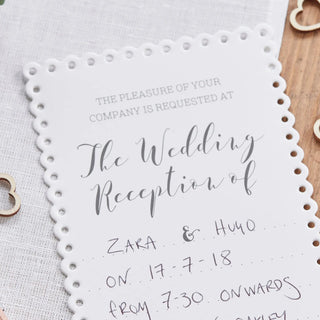 THE PLEASURE OF YOUR
COMPANY IS REQUESTED AT
The Wedding
Reception of
ZARA & HUGO
ON 17-7-18
FROM 7-30 ONWARDS